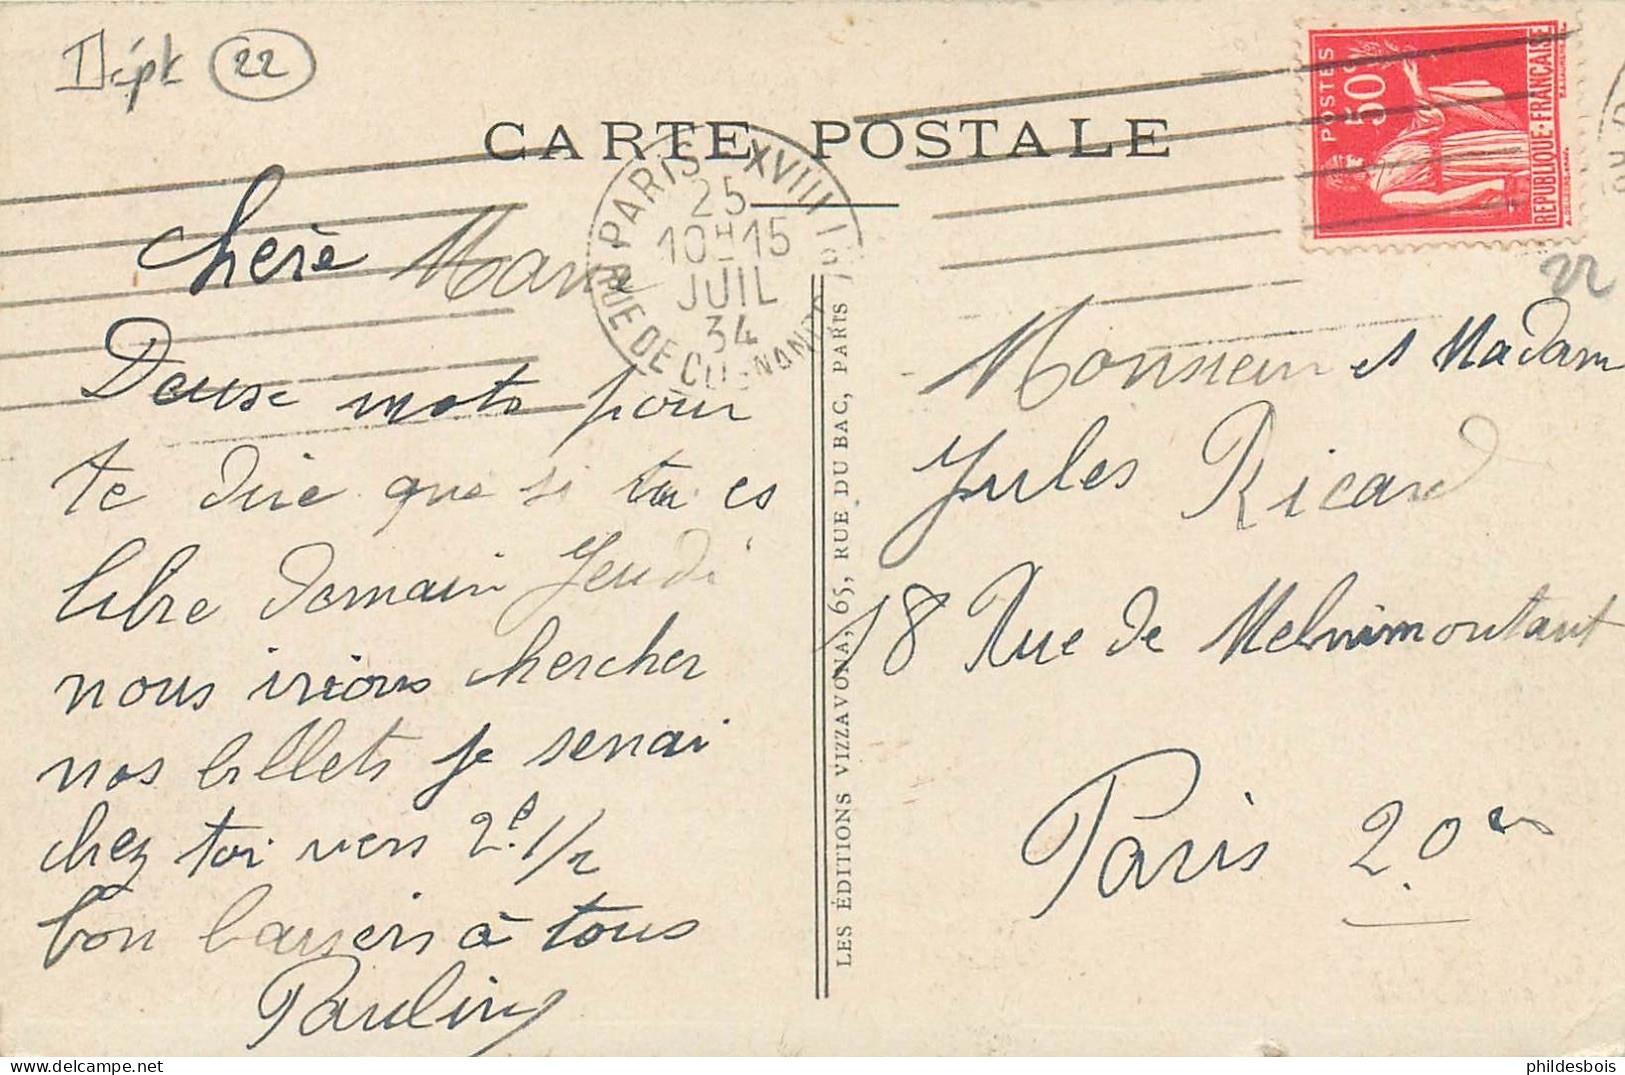 Dépt 22
CARTE POSTALE
PARIS XVIII
25
10H15
JUIL
34
RUE DE
POSTES
50c
REPUBLIQUE·FRANÇAISE
22
Chère Marie
Deux mots pour
te dire que si tu es
libre Demain Jeudi
nous irions chercher
nos billets je serrai
chez toi vers 2e 1/2
bon baisers à tous
Pauline
LES ÉDITIONS VIZZAVONA, 65, RUE DU BAC, PARIS
Monsieur et Madam
Jules Ricard
18 Rue de Melnimontant
Paris 20es
delcampe.net
phildesbois